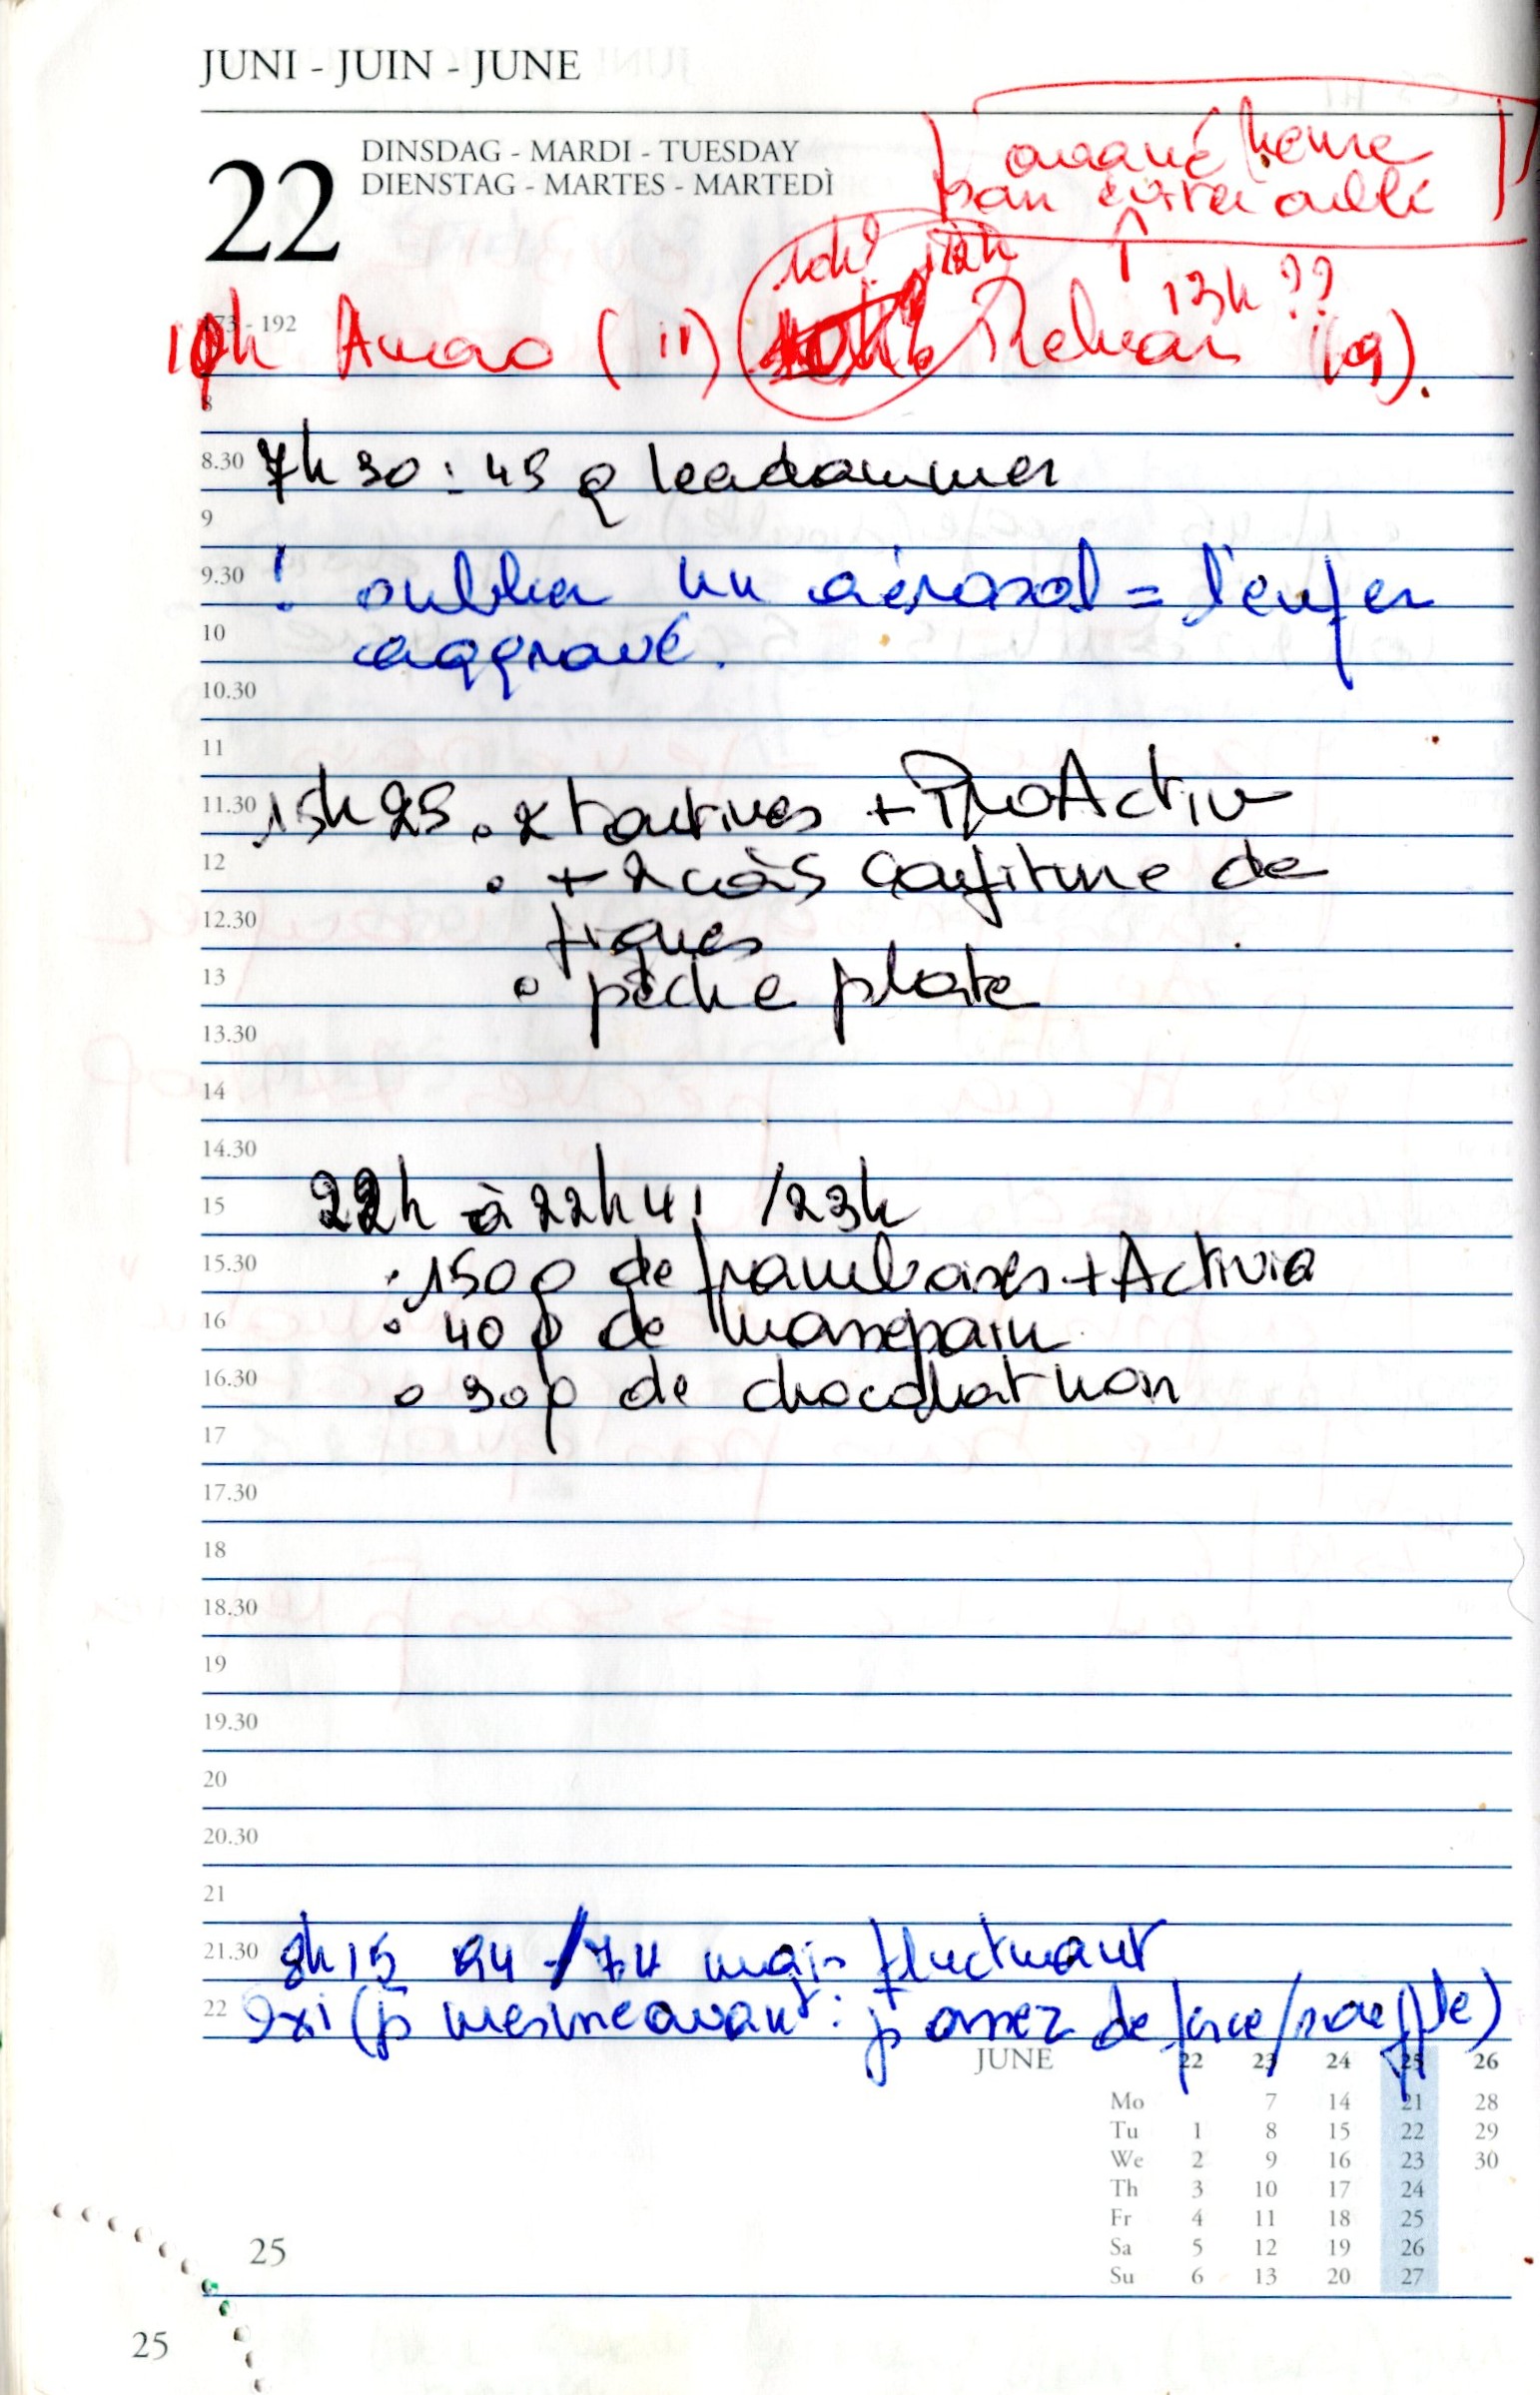 JUNI - JUIN - JUNE
22
DINSDAG - MARDI - TUESDAY
DIENSTAG - MARTES - MARTEDÌ
heure
oubli
10h? 12h
13h ??
173 - 192
10h (11) (19).
8
8.30 7h30 : 45 g leerdammer
9
9.30 ! oublier un aérosol = l'enfer
10 aggravé.
10.30
11
11.30 15h25 . 2 tartines + ProActiv
12 . + 2 càs confiture de
12.30 figues
13 . pêche plate
13.30
14
14.30
15 22h à 22h41 /23h
15.30 . 150 g de framboises + Activia
16 . 40 g de massepain
16.30 . 30 g de chocolat noir
17
17.30
18
18.30
19
19.30
20
20.30
21
21.30 8h15 94 - / 74 mais fluctuant
22 oxi (p̄ mesuré avant : p̄ assez de force/souffle)
JUNE 22 23 24 25 26
Mo 7 14 21 28
Tu 1 8 15 22 29
We 2 9 16 23 30
Th 3 10 17 24
Fr 4 11 18 25
Sa 5 12 19 26
Su 6 13 20 27
25
25